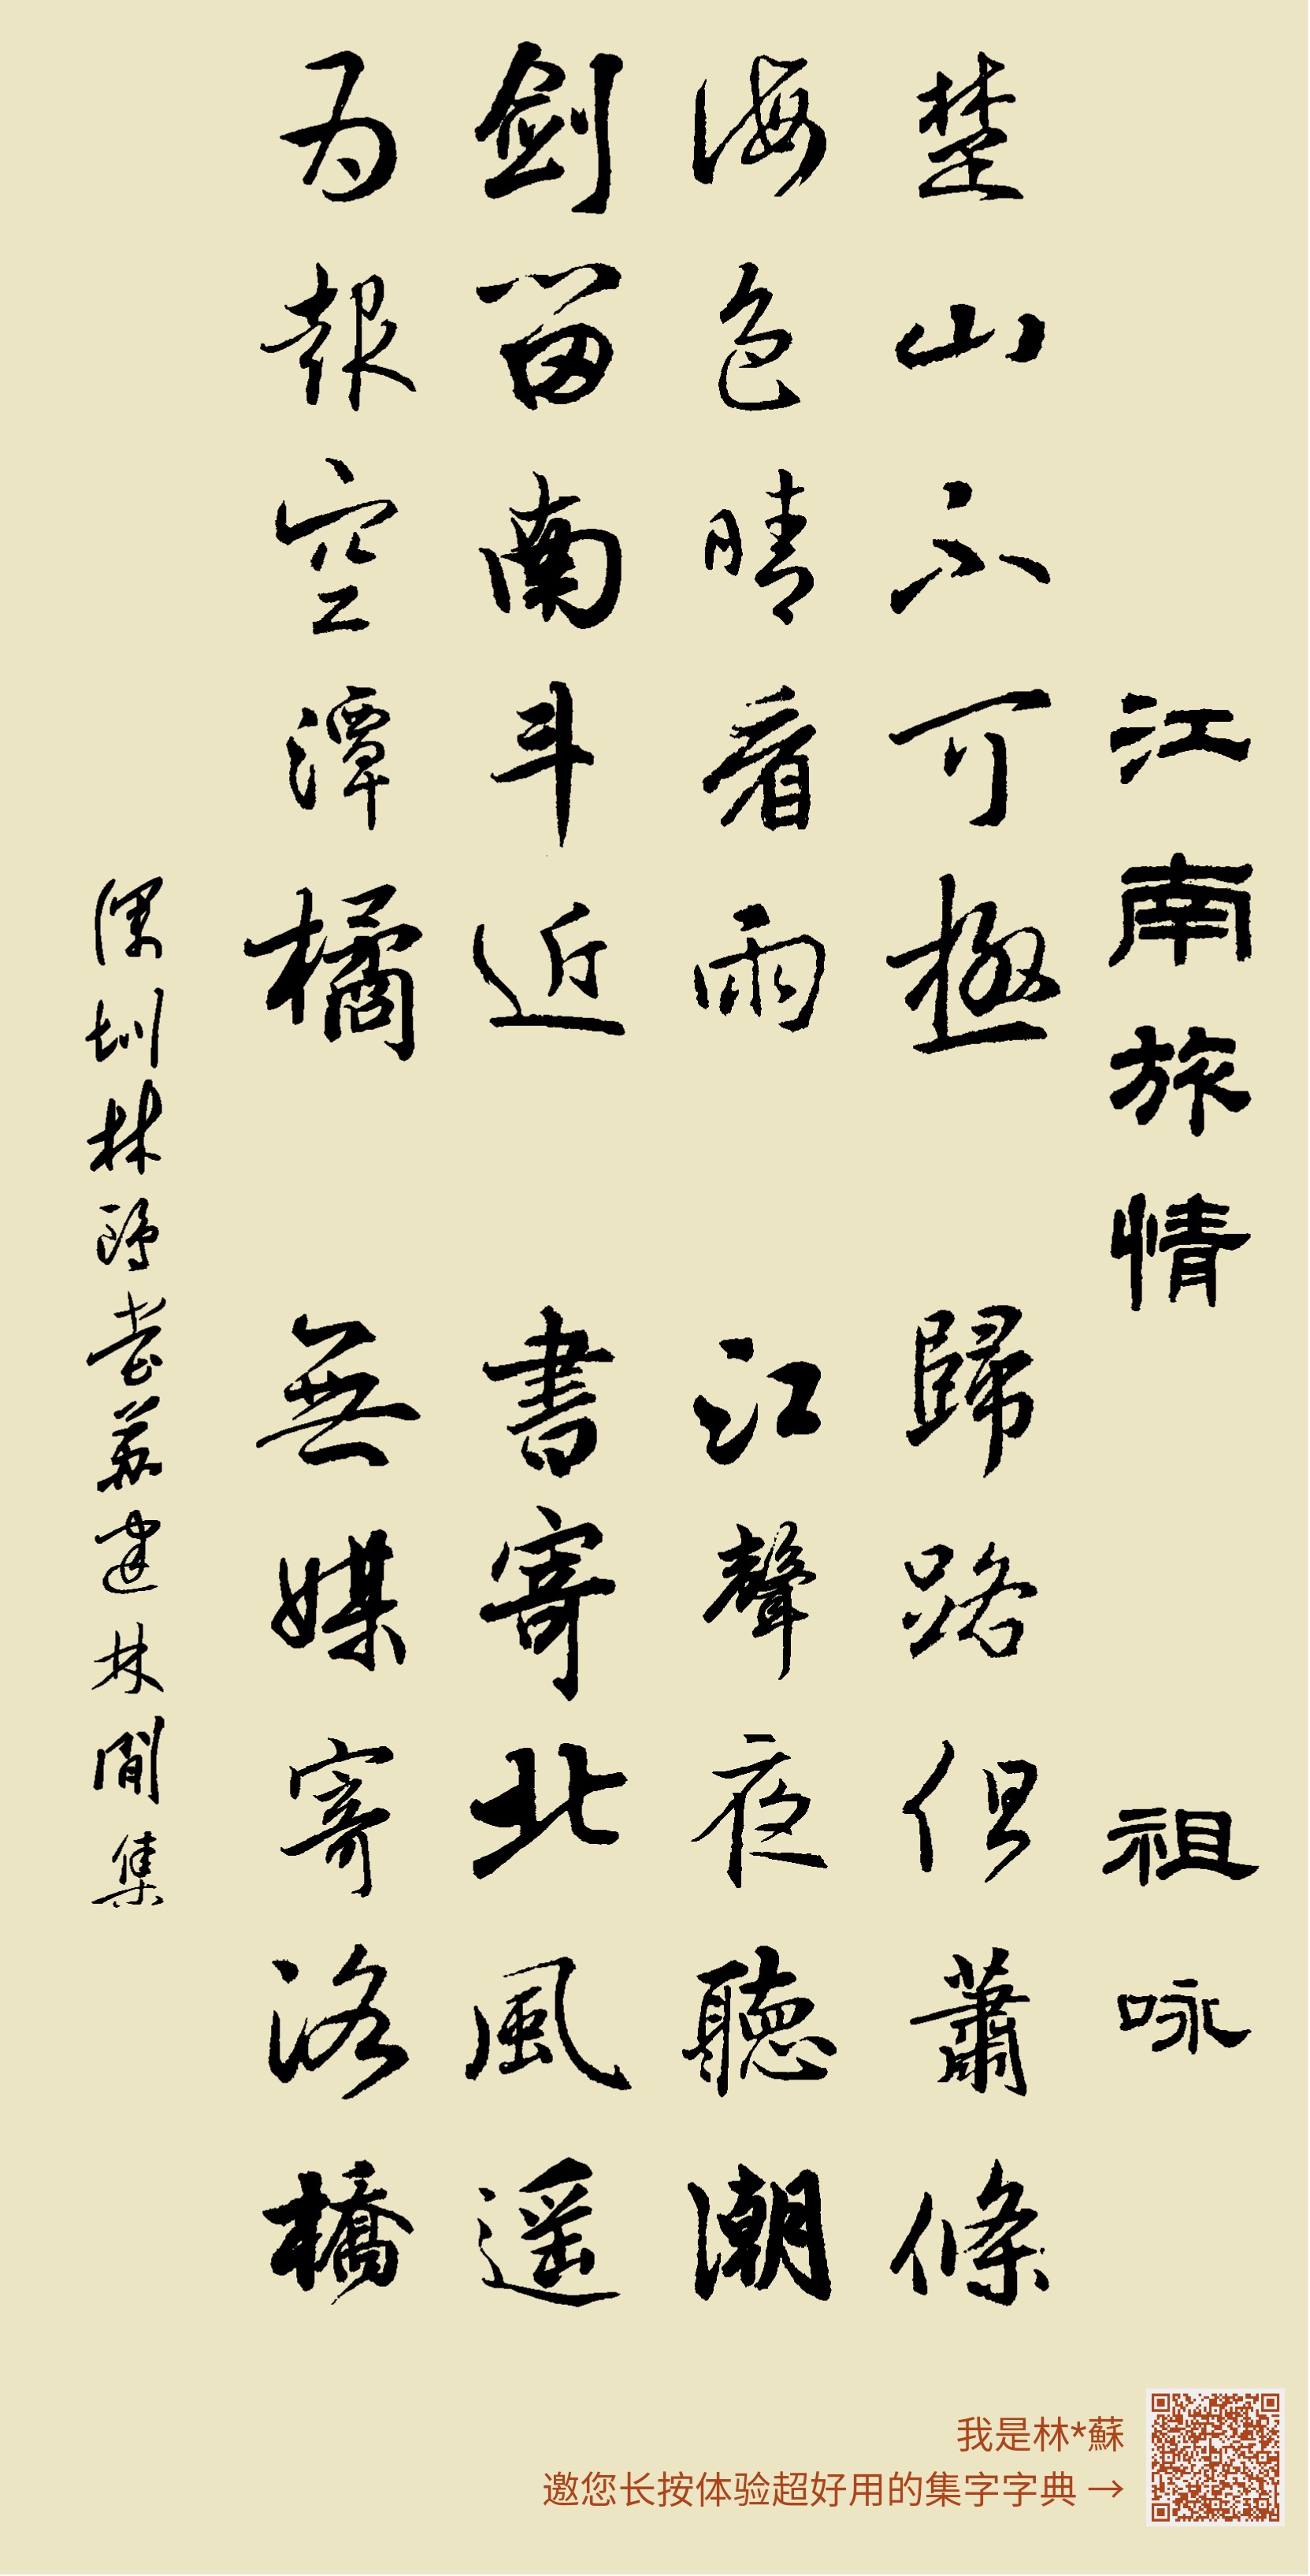 江南旅情 祖咏
楚山不可極 歸路但蕭條
海色晴看雨 江聲夜聽潮
劍留南斗近 書寄北風遥
为報空潭橘 無媒寄洛橋
深圳林鸥堂蘇建林閒集
我是林*蘇
邀您长按体验超好用的集字字典 →